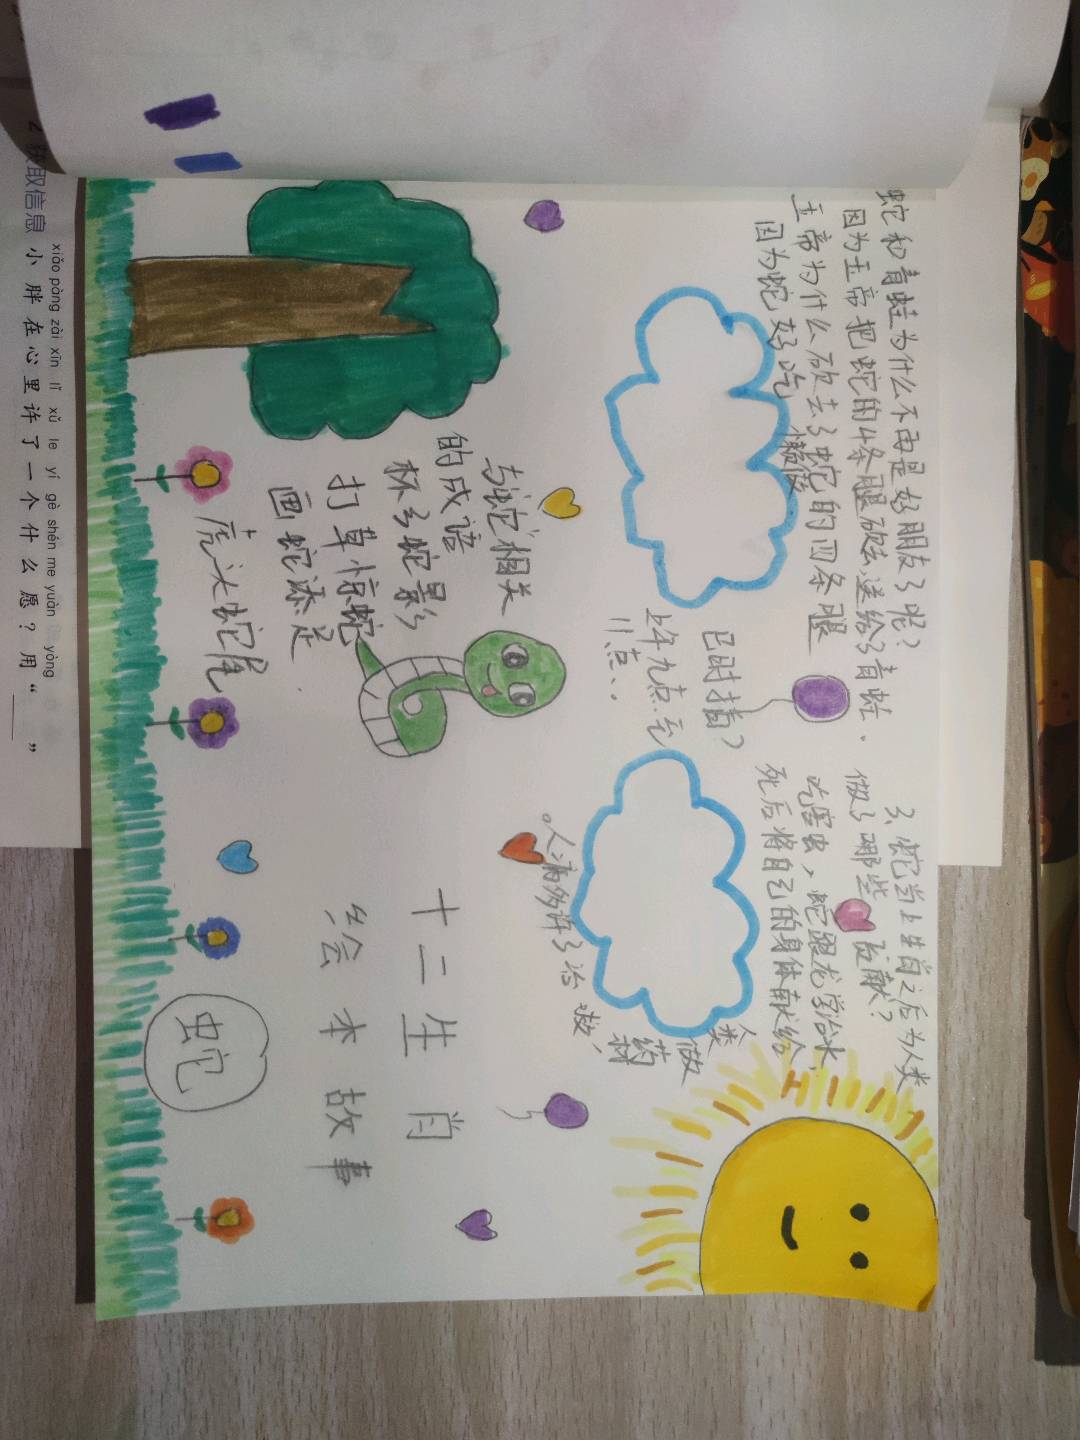 蛇和青蛙为什么不再是好朋友了呢?
因为玉帝把蛇的4条腿砍去,送给了青蛙.
玉帝为什么砍去了蛇的四条腿
因为蛇好吃
懒做
3、蛇当上生肖之后为人类
做了哪些贡献?
吃害虫,蛇跟龙学治水,
死后将自己的身体献给
人类
做
药材
救
治了许多病人。
巳时指?
上午九点至
11点..
与"蛇"相关
的成语
杯弓蛇影
打草惊蛇
画蛇添足
虎头蛇尾
十二生肖
绘本故事
蛇
2 获取信息
xiǎo pàng zài xīn lǐ xǔ le yí gè shén me yuàn yòng
小胖在心里许了一个什么愿?用"____"